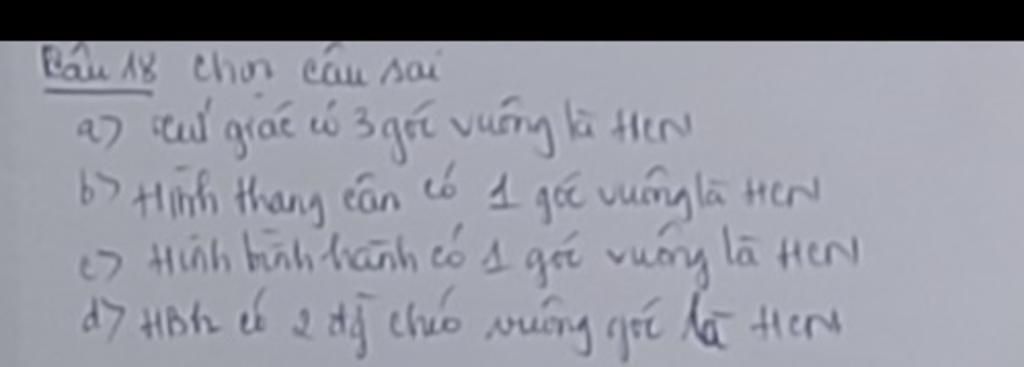 Câu 18 chọn câu sai
a) Tứ giác có 3 góc vuông là HCN
b) Hình thang cân có 1 góc vuông là HCN
c) Hình bình hành có 1 góc vuông là HCN
d) HBh có 2 đg chéo vuông góc là HCN